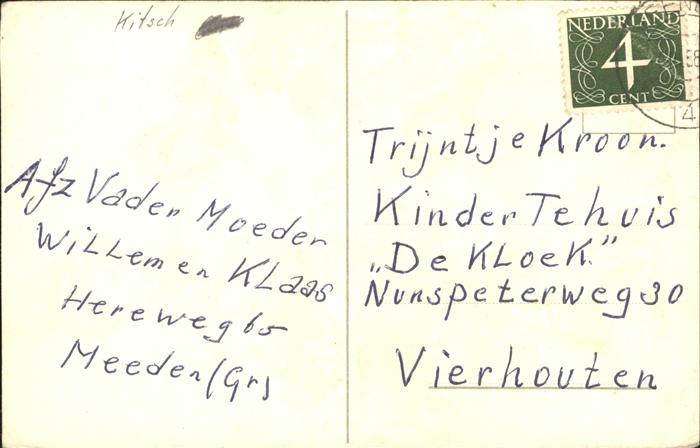 Kitsch
NEDERLAND
4
CENT
58
4
Afz Vader Moeder
Willem en Klaas
Hereweg 65
Meeden (Gr)
Trijntje Kroon.
Kinder Tehuis
„De Kloek."
Nunspeterweg 30
Vierhouten